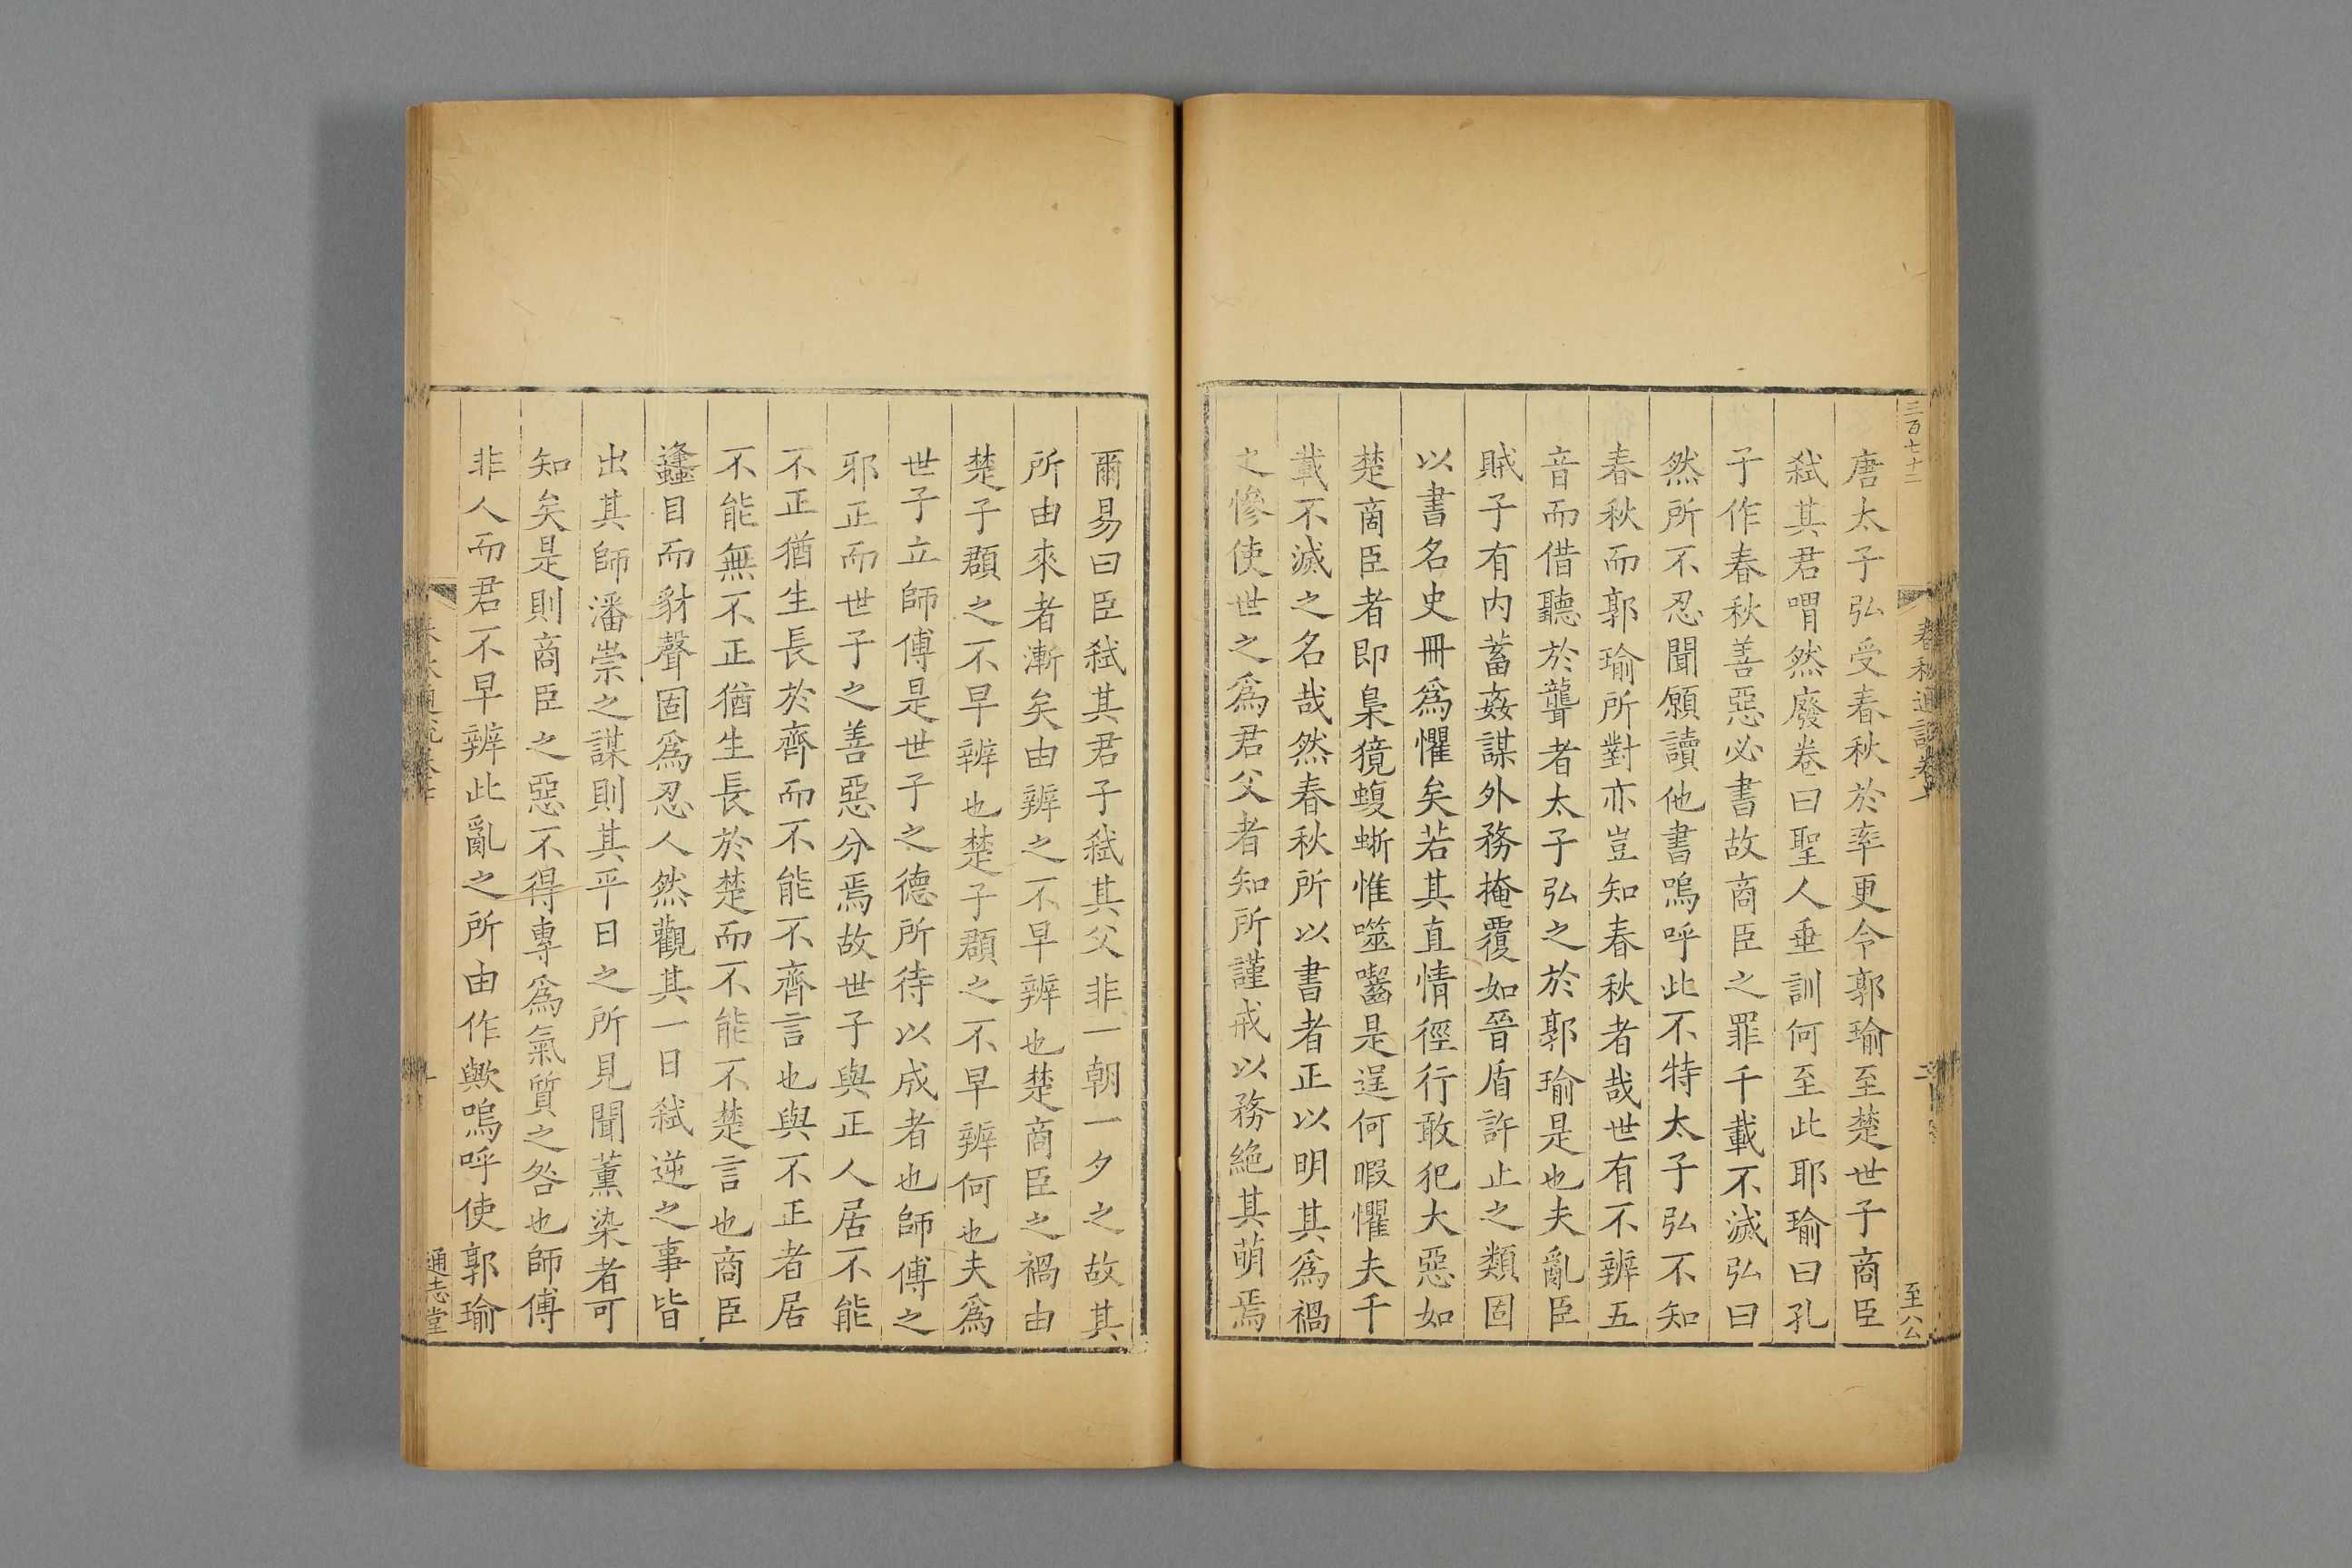 三百七十二
春秋通說卷
至公
唐太子弘受春秋於率更令郭瑜至楚世子商臣
弑其君喟然廢卷曰聖人垂訓何至此耶瑜曰孔
子作春秋善惡必書故商臣之罪千載不滅弘曰
然所不忍聞願讀他書嗚呼此不特太子弘不知
春秋而郭瑜所對亦豈知春秋者哉世有不辨五
音而借聽於聾者太子弘之於郭瑜是也夫亂臣
賊子有内蓄姦謀外務掩覆如晉盾許止之類固
以書名史冊爲懼矣若其直情徑行敢犯大惡如
楚商臣者即梟獍蝮蜥惟噬囓是逞何暇懼夫千
載不滅之名哉然春秋所以書者正以明其爲禍
之慘使世之爲君父者知所謹戒以務絶其萌焉
爾易曰臣弑其君子弑其父非一朝一夕之故其
所由來者漸矣由辨之不早辨也楚商臣之禍由
楚子頵之不早辨也楚子頵之不早辨何也夫爲
世子立師傅是世子之德所待以成者也師傅之
邪正而世子之善惡分焉故世子與正人居不能
不正猶生長於齊而不能不齊言也與不正者居
不能無不正猶生長於楚而不能不楚言也商臣
蠭目而豺聲固爲忍人然觀其一日弑逆之事皆
出其師潘崇之謀則其平日之所見聞薰染者可
知矣是則商臣之惡不得專爲氣質之咎也師傅
非人而君不早辨此亂之所由作歟嗚呼使郭瑜
通志堂